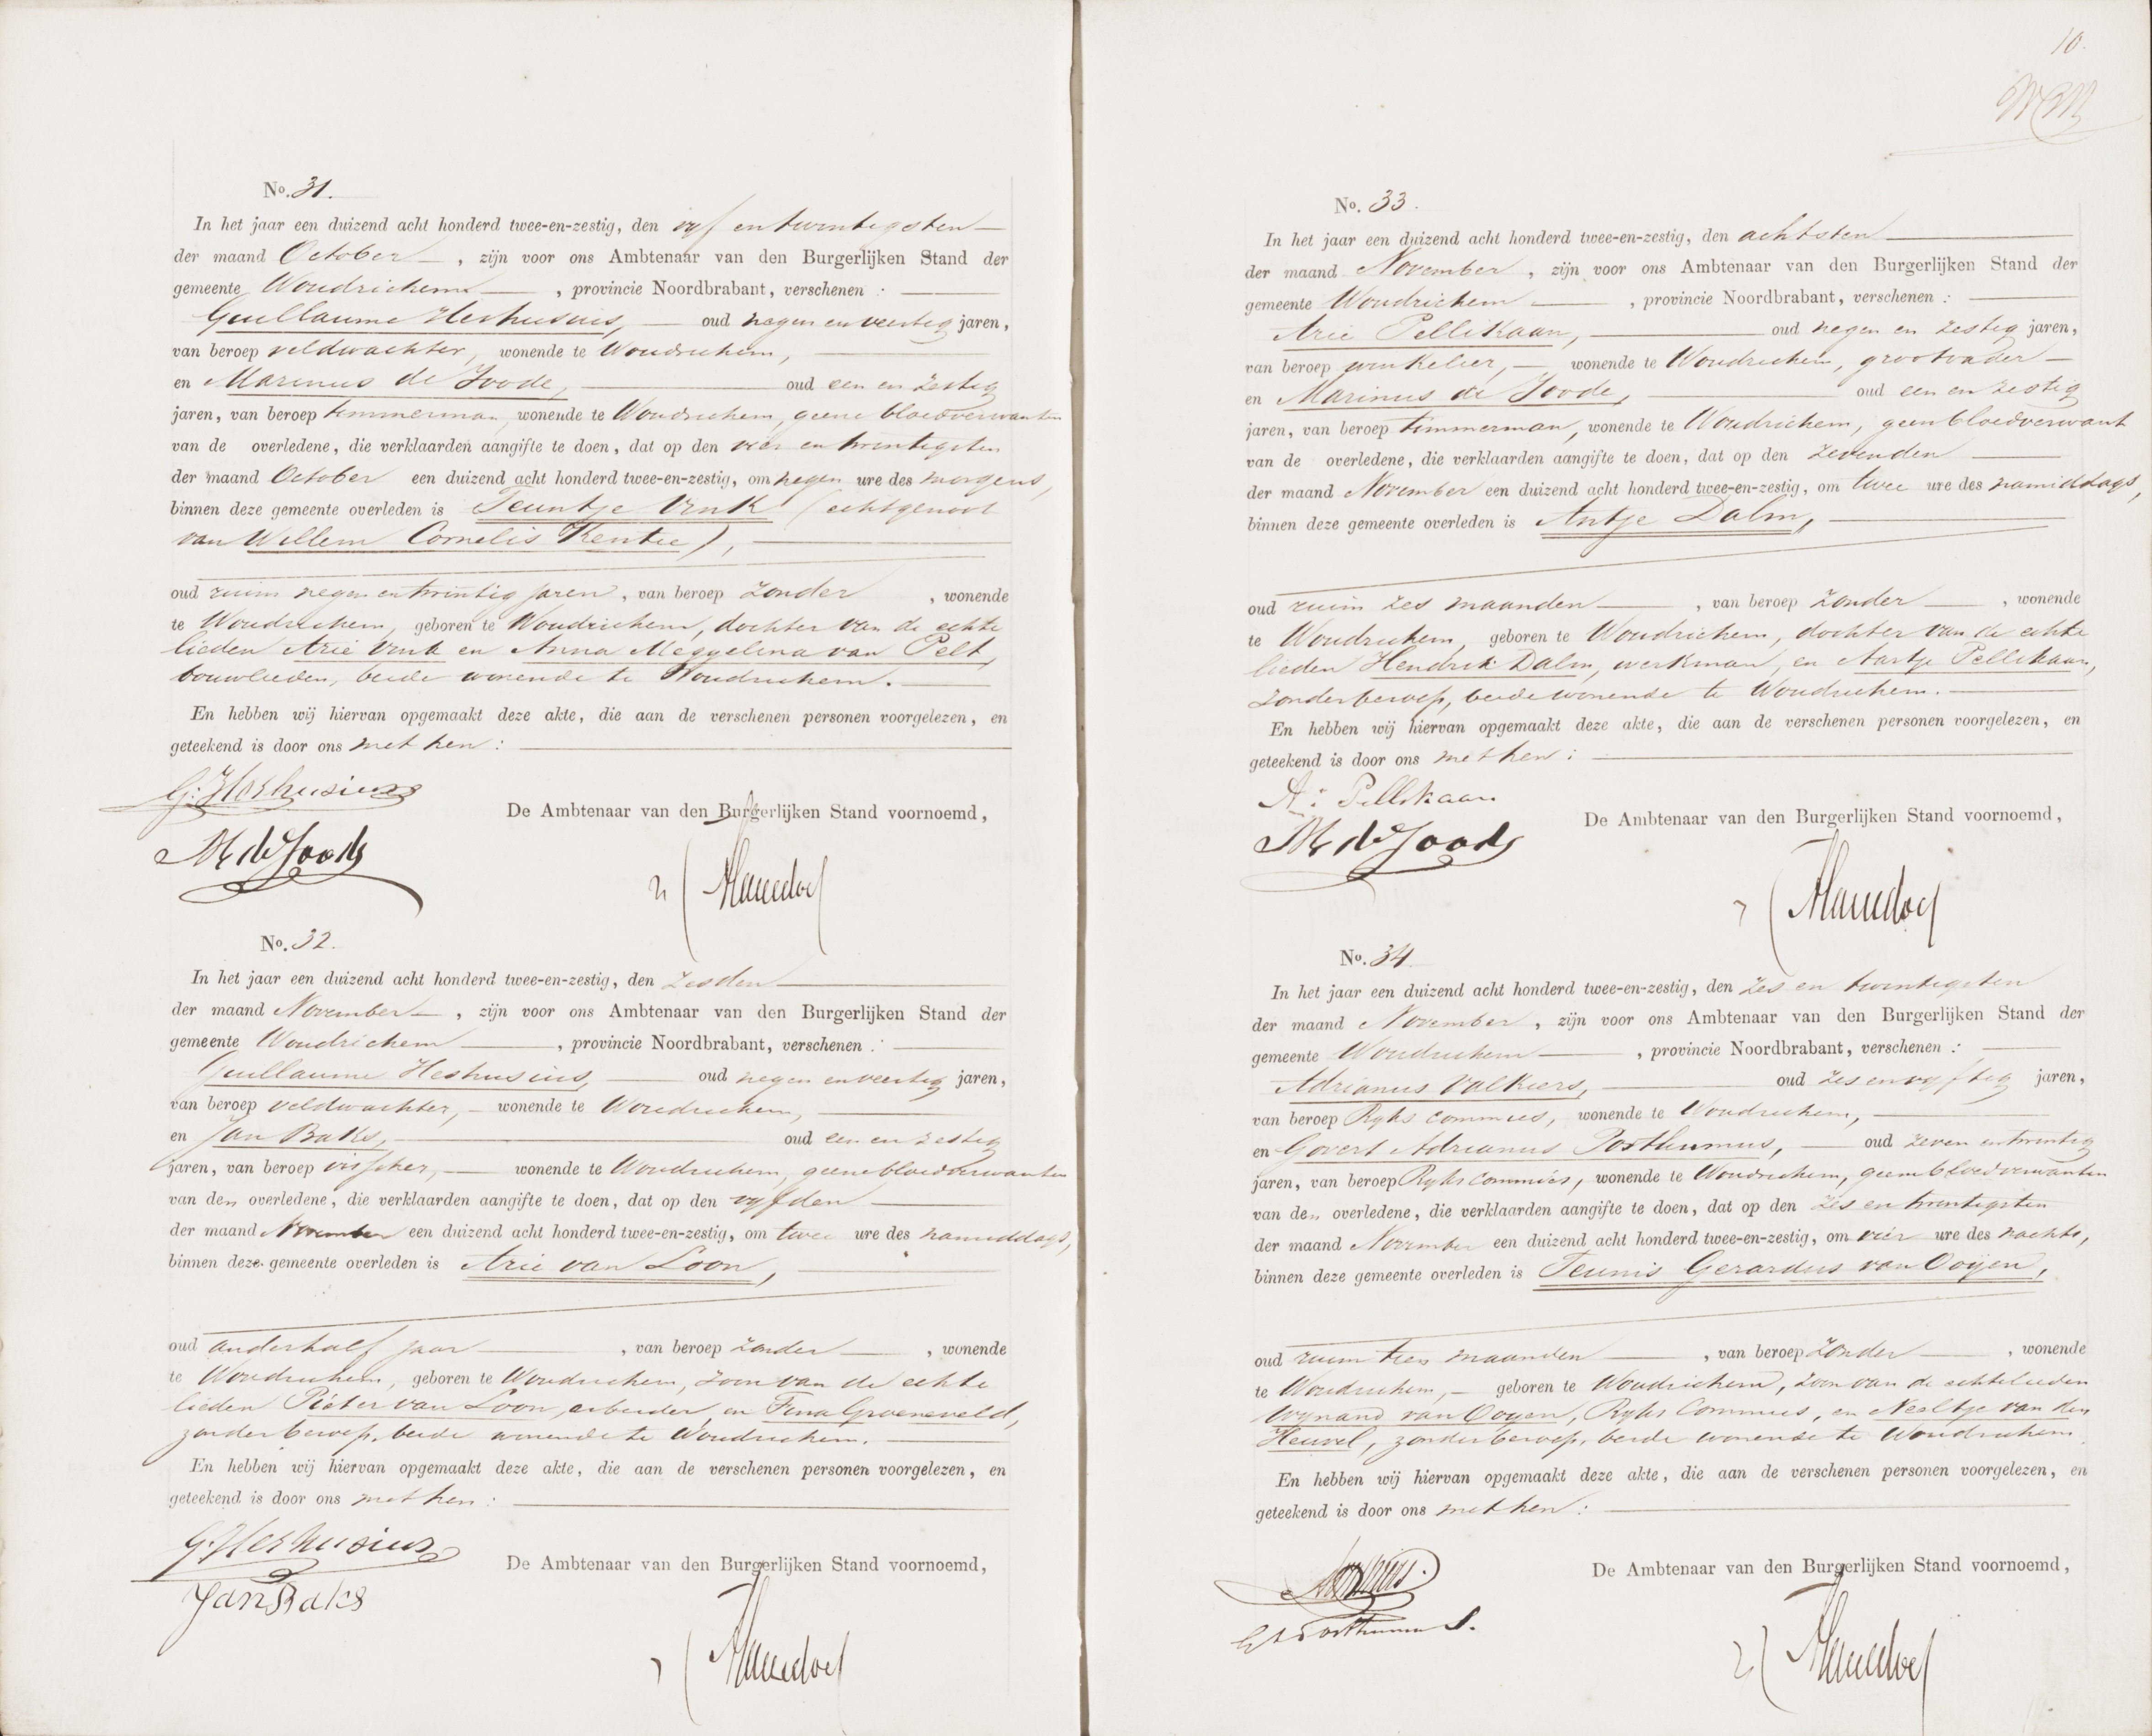 No. 31.
In het jaar een duizend acht honderd twee-en-zestig, den vyf en twintigsten
der maand October, zijn voor ons Ambtenaar van den Burgerlijken Stand der
gemeente Woudrichem, provincie Noordbrabant, verschenen :
Guillaume Heshusius, oud negen en veertig jaren,
van beroep veldwachter, wonende te Woudrichem,
en Marinus de Joode, oud een en zestig
jaren, van beroep timmerman, wonende te Woudrichem, geene bloedverwanten
van de overledene, die verklaarden aangifte te doen, dat op den vier en twintigsten
der maand October een duizend acht honderd twee-en-zestig, om negen ure des morgens,
binnen deze gemeente overleden is Teuntje Vink (echtgenoot
van Willem Cornelis Kentie),
oud ruim negen en twintig jaren, van beroep zonder, wonende
te Woudrichem, geboren te Woudrichem, dochter van de echte
lieden Arie Vink en Anna Meggelina van Pelt,
bouwlieden, beide wonende te Woudrichem.
En hebben wij hiervan opgemaakt deze akte, die aan de verschenen personen voorgelezen, en
geteekend is door ons met hen :
G: Heshusius
De Ambtenaar van den Burgerlijken Stand voornoemd,
M de Joode
No. 32.
In het jaar een duizend acht honderd twee-en-zestig, den zesden
der maand November, zijn voor ons Ambtenaar van den Burgerlijken Stand der
gemeente Woudrichem, provincie Noordbrabant, verschenen :
Guillaume Heshusius, oud negen en veertig jaren,
van beroep veldwachter, wonende te Woudrichem,
en Jan Baks, oud een en zestig
jaren, van beroep visscher, wonende te Woudrichem, geene bloedverwanten
van den overledene, die verklaarden aangifte te doen, dat op den vyfden
der maand November een duizend acht honderd twee-en-zestig, om twee ure des namiddags,
binnen deze gemeente overleden is Arie van Loon,
oud anderhalf jaar, van beroep zonder, wonende
te Woudrichem, geboren te Woudrichem, zoon van de echte
lieden Pieter van Loon, arbeider, en Fina Groeneveld,
zonder beroep, beide wonende te Woudrichem.
En hebben wij hiervan opgemaakt deze akte, die aan de verschenen personen voorgelezen, en
geteekend is door ons met hen :
G. Heshusius
De Ambtenaar van den Burgerlijken Stand voornoemd,
Jan Baks
10.
No. 33.
In het jaar een duizend acht honderd twee-en-zestig, den achtsten
der maand November, zijn voor ons Ambtenaar van den Burgerlijken Stand der
gemeente Woudrichem, provincie Noordbrabant, verschenen :
Arie Pellikaan, oud negen en zestig jaren,
van beroep winkelier, wonende te Woudrichem, grootvader
en Marinus de Joode, oud een en zestig
jaren, van beroep timmerman, wonende te Woudrichem, geen bloedverwant
van de overledene, die verklaarden aangifte te doen, dat op den zevenden
der maand November een duizend acht honderd twee-en-zestig, om twee ure des namiddags,
binnen deze gemeente overleden is Antje Dalm,
oud ruim zes maanden, van beroep zonder, wonende
te Woudrichem, geboren te Woudrichem, dochter van de echte
lieden Hendrik Dalm, werkman, en Aartje Pellikaan,
zonder beroep, beide wonende te Woudrichem.
En hebben wij hiervan opgemaakt deze akte, die aan de verschenen personen voorgelezen, en
geteekend is door ons met hen :
A: Pellikaan
De Ambtenaar van den Burgerlijken Stand voornoemd,
M de Joode
No. 34
In het jaar een duizend acht honderd twee-en-zestig, den zes en twintigsten
der maand November, zijn voor ons Ambtenaar van den Burgerlijken Stand der
gemeente Woudrichem, provincie Noordbrabant, verschenen :
Adrianus Valkiers, oud zes en vyftig jaren,
van beroep Ryks Commies, wonende te Woudrichem,
en Govert Adrianus Posthumus, oud zeven en twintig
jaren, van beroep Ryks Commies, wonende te Woudrichem, geen bloedverwanten
van den overledene, die verklaarden aangifte te doen, dat op den zes en twintigsten
der maand November een duizend acht honderd twee-en-zestig, om vier ure des nachts,
binnen deze gemeente overleden is Teunis Gerardus van Ooyen,
oud ruim tien maanden, van beroep zonder, wonende
te Woudrichem, geboren te Woudrichem, zoon van de echtelieden
Wynand van Ooyen, Ryks Commies, en Neeltje van den
Heuvel, zonder beroep, beide wonende te Woudrichem
En hebben wij hiervan opgemaakt deze akte, die aan de verschenen personen voorgelezen, en
geteekend is door ons met hen :
De Ambtenaar van den Burgerlijken Stand voornoemd,